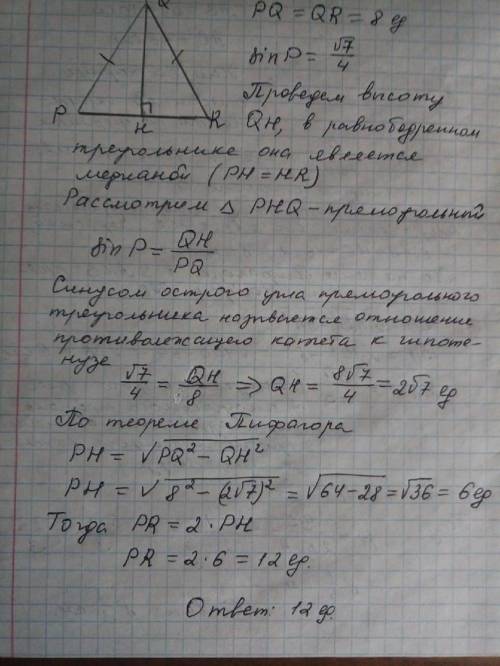 Q
PQ = QR = 8 ед
sin P = √7/4
Проведем высоту
P H R QH, в равнобедренном
треугольнике она является
медианой (PH = HR)
Рассмотрим △ PHQ – прямоугольный
sin P = QH/PQ
Синусом острого угла прямоугольного
треугольника называется отношение
противолежащего катета к гипоте-
нузе
√7/4 = QH/8 ⇒ QH = 8√7/4 = 2√7 ед
По теореме Пифагора
PH = √(PQ² − QH²)
PH = √(8² − (2√7)²) = √(64 − 28) = √36 = 6 ед
Тогда PR = 2 · PH
PR = 2 · 6 = 12 ед.
Ответ: 12 ед.